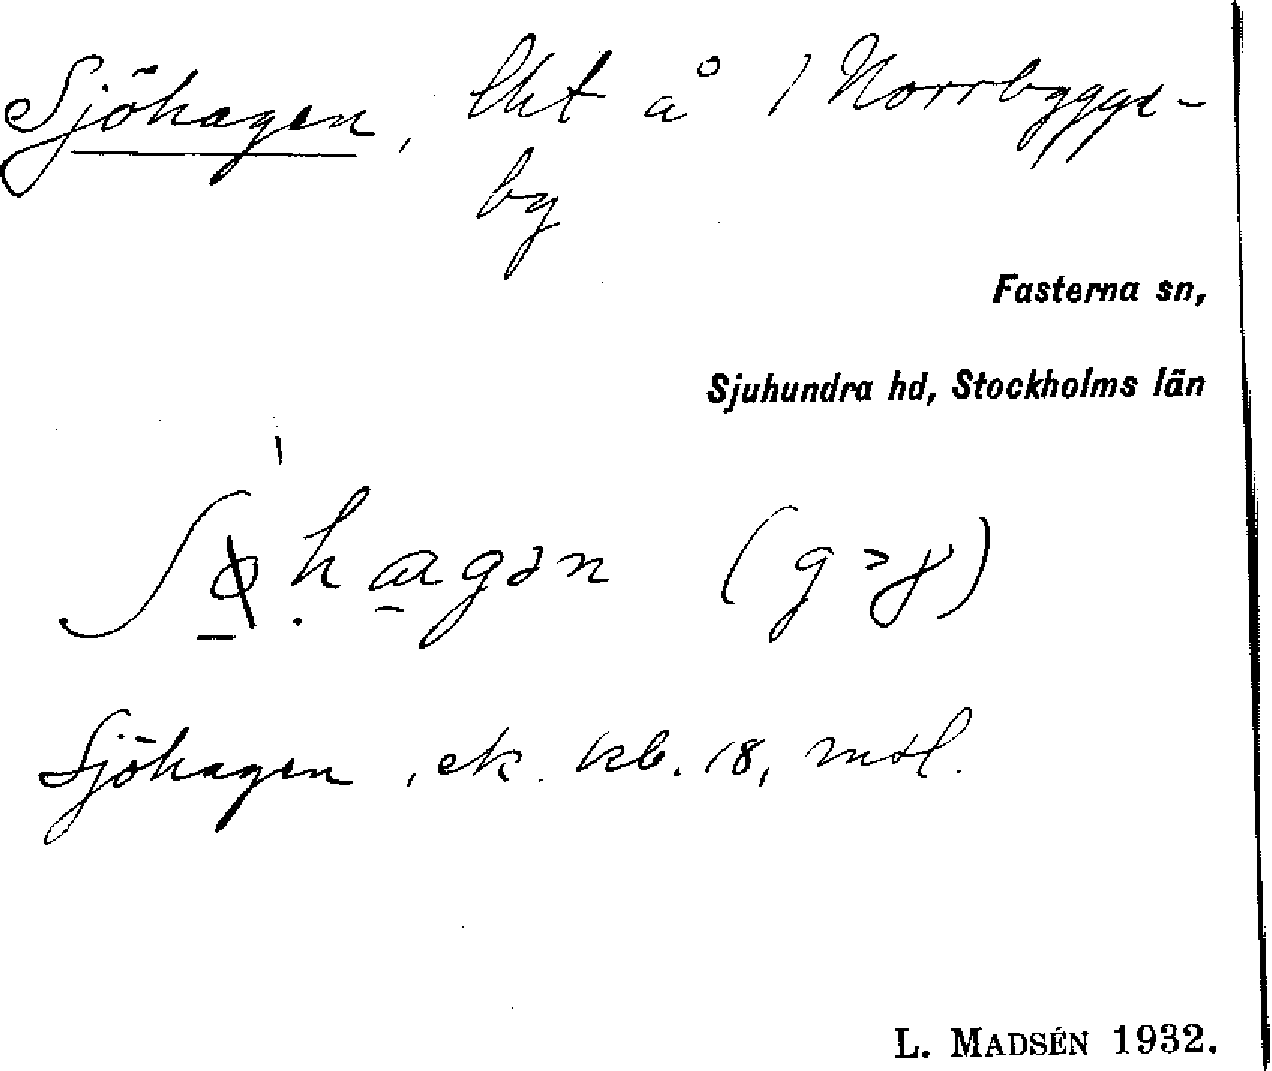 Sjöhagen, lht å 1 Norrbygge-
by
Fasterna sn,
Sjuhundra hd, Stockholms län
ʃøhagən (g>ɣ)
Sjöhagen, ek. kb. 18, mtl.
L. MADSÉN 1932.